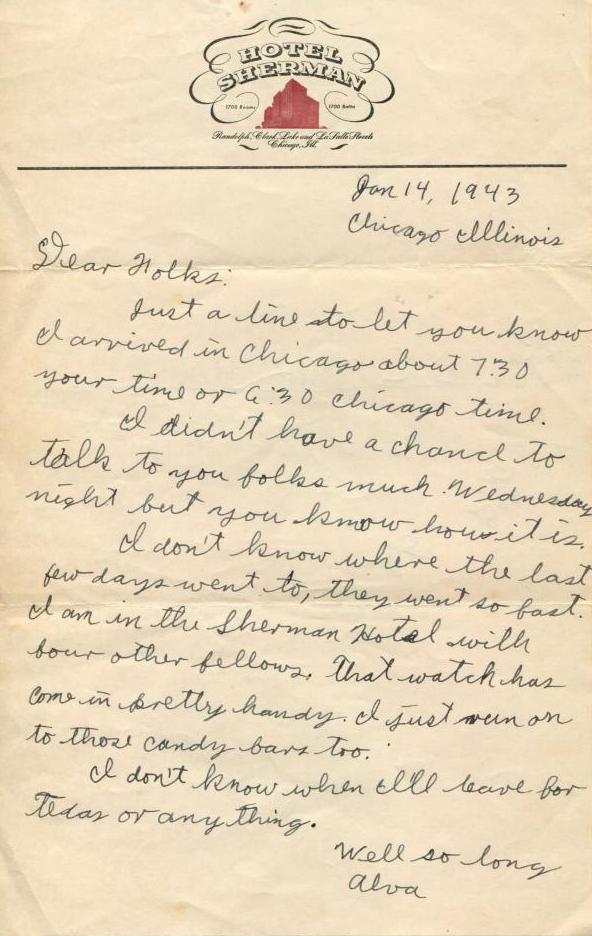 HOTEL
SHERMAN
1700 Rooms 1700 Baths
Randolph, Clark, Lake and La Salle Streets
Chicago, Ill.
Jan 14, 1943
Chicago Illinois
Dear Folks:
Just a line to let you know
I arrived in Chicago about 7:30
your time or 6:30 Chicago time.
I didn't have a chance to
talk to you folks much Wednesday
night but you know how it is.
I don't know where the last
few days went to, they went so fast.
I am in the Sherman Hotel with
four other fellows. That watch has
come in pretty handy. I just run on
to those candy bars too.
I don't know when I'll leave for
Texas or anything.
Well so long
Alva